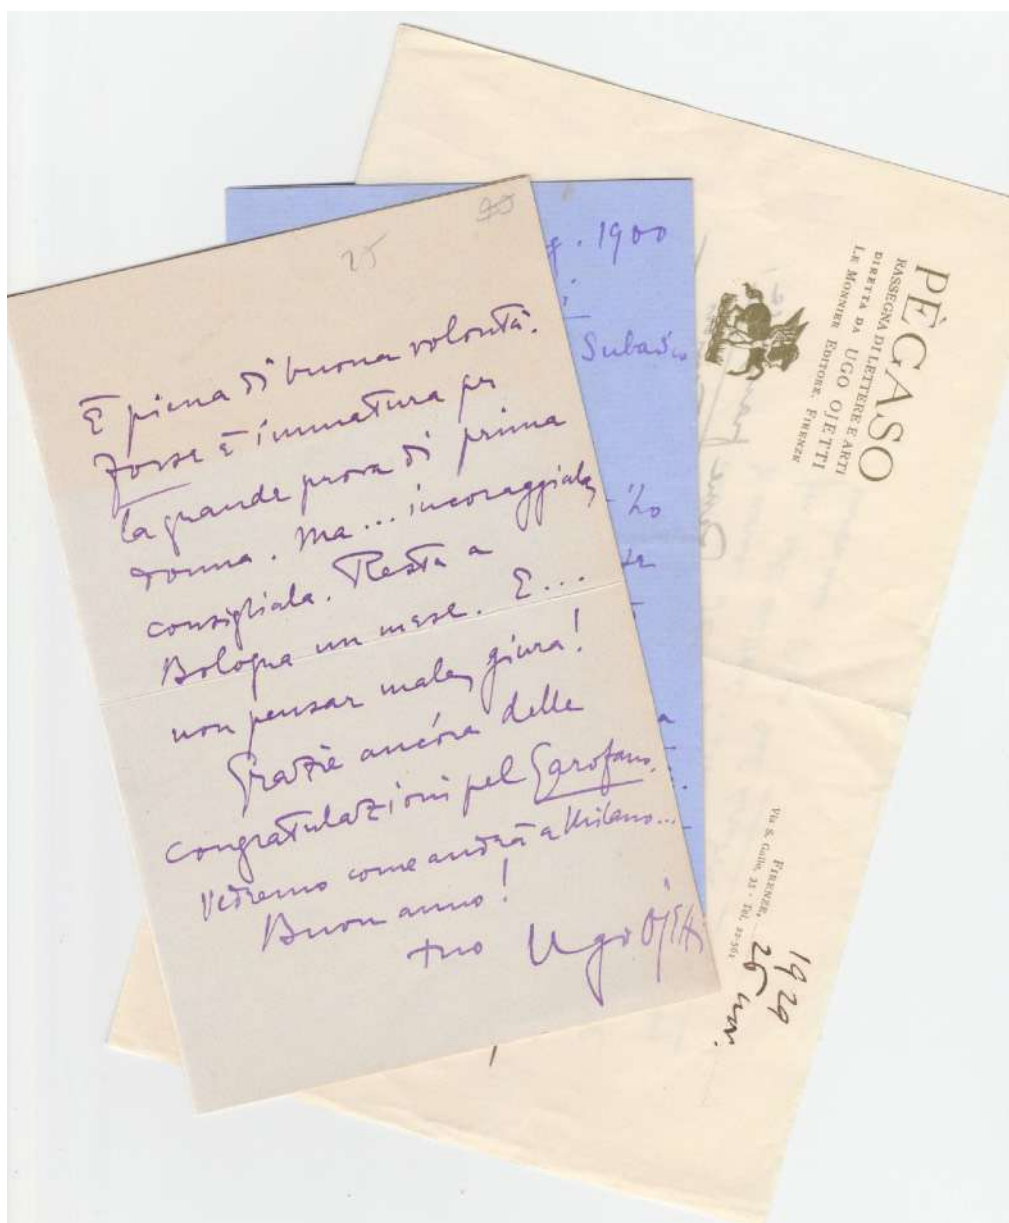 25
20
È piena di buona volontà.
Forse è immatura per
la grande prova di prima
donna. Ma... incoraggiala,
consigliala. Resta a
Bologna un mese. E...
non pensar male, giura!
Grazie ancóra delle
congratulazioni pel Garofano.
Vedremo come andrà a Milano...
Buon anno!
tuo Ugo Ojetti
1900
Subasio
PÈGASO
RASSEGNA DI LETTERE E ARTI
DIRETTA DA UGO OJETTI
LE MONNIER EDITORE, FIRENZE
FIRENZE,
Via S. Gallo, 33 - Tel. 22-561
1929